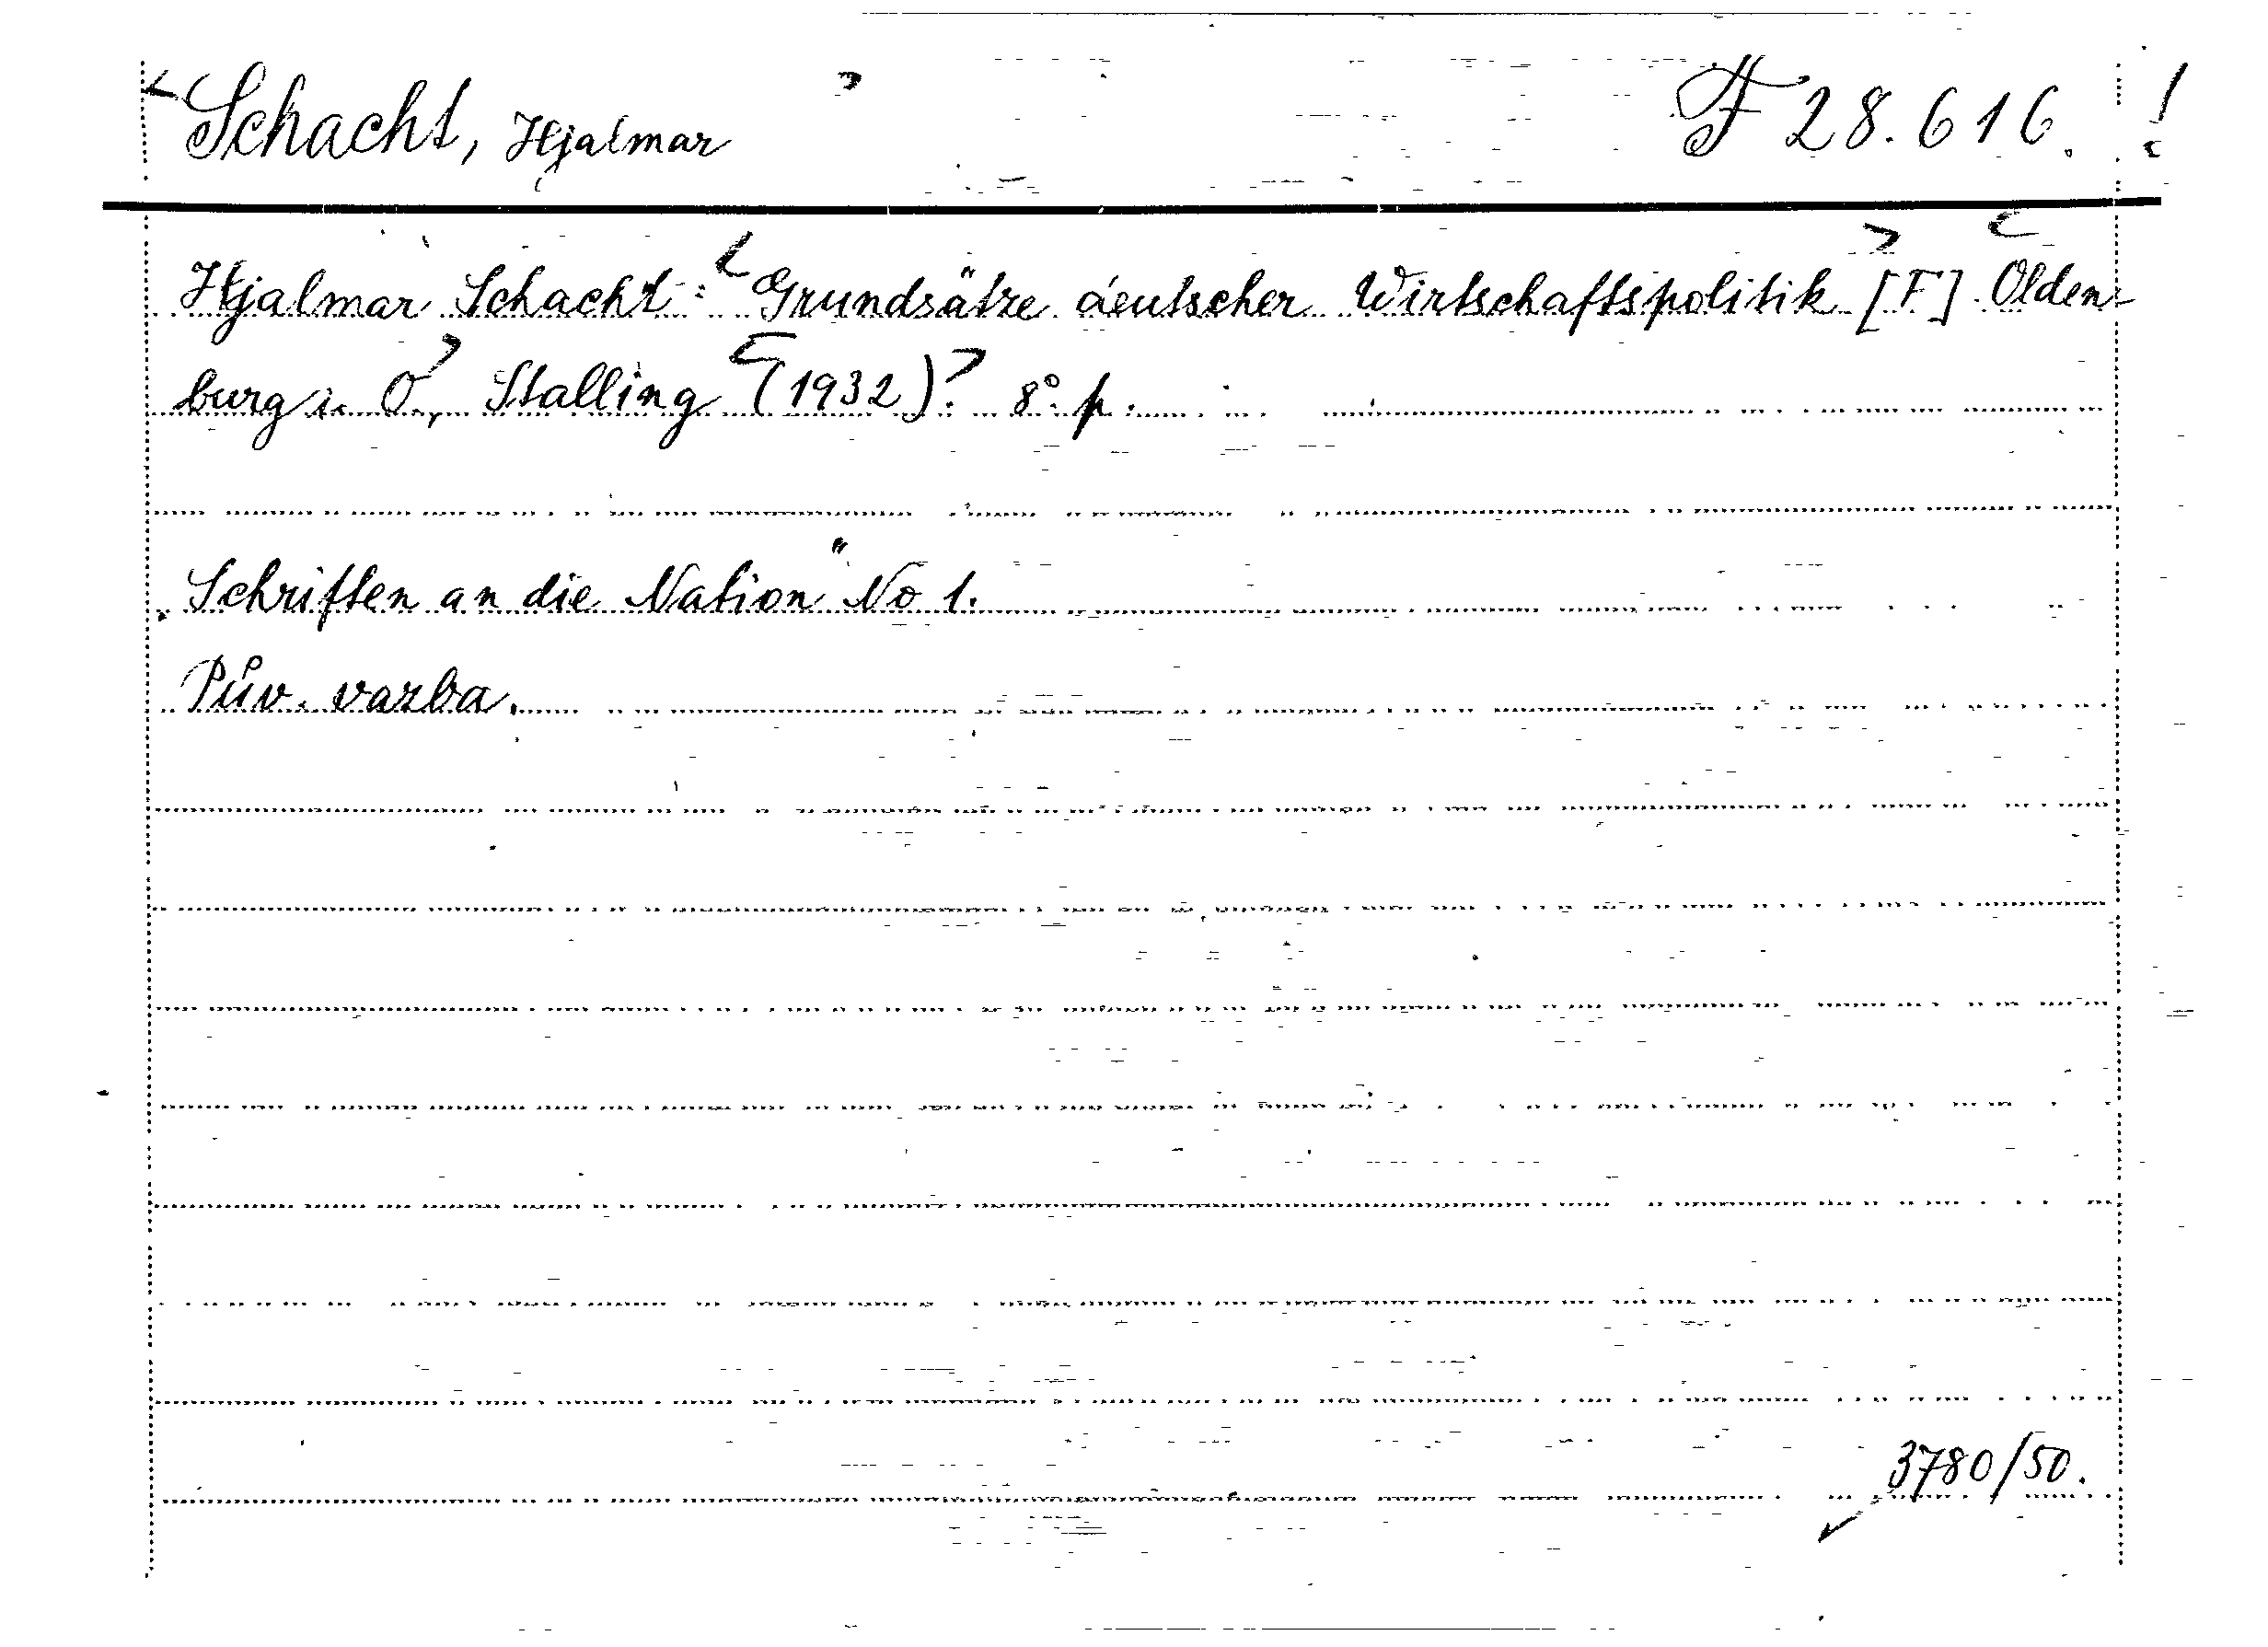 Schacht, Hjalmar F 28.616. !
Hjalmar Schacht: Grundsätze deutscher Wirtschaftspolitik [F] Olden-
burg i. O., Stalling (1932)? 8° p.
Schriften an die Nation" No 1.
Pův. vazba.
3780/50.